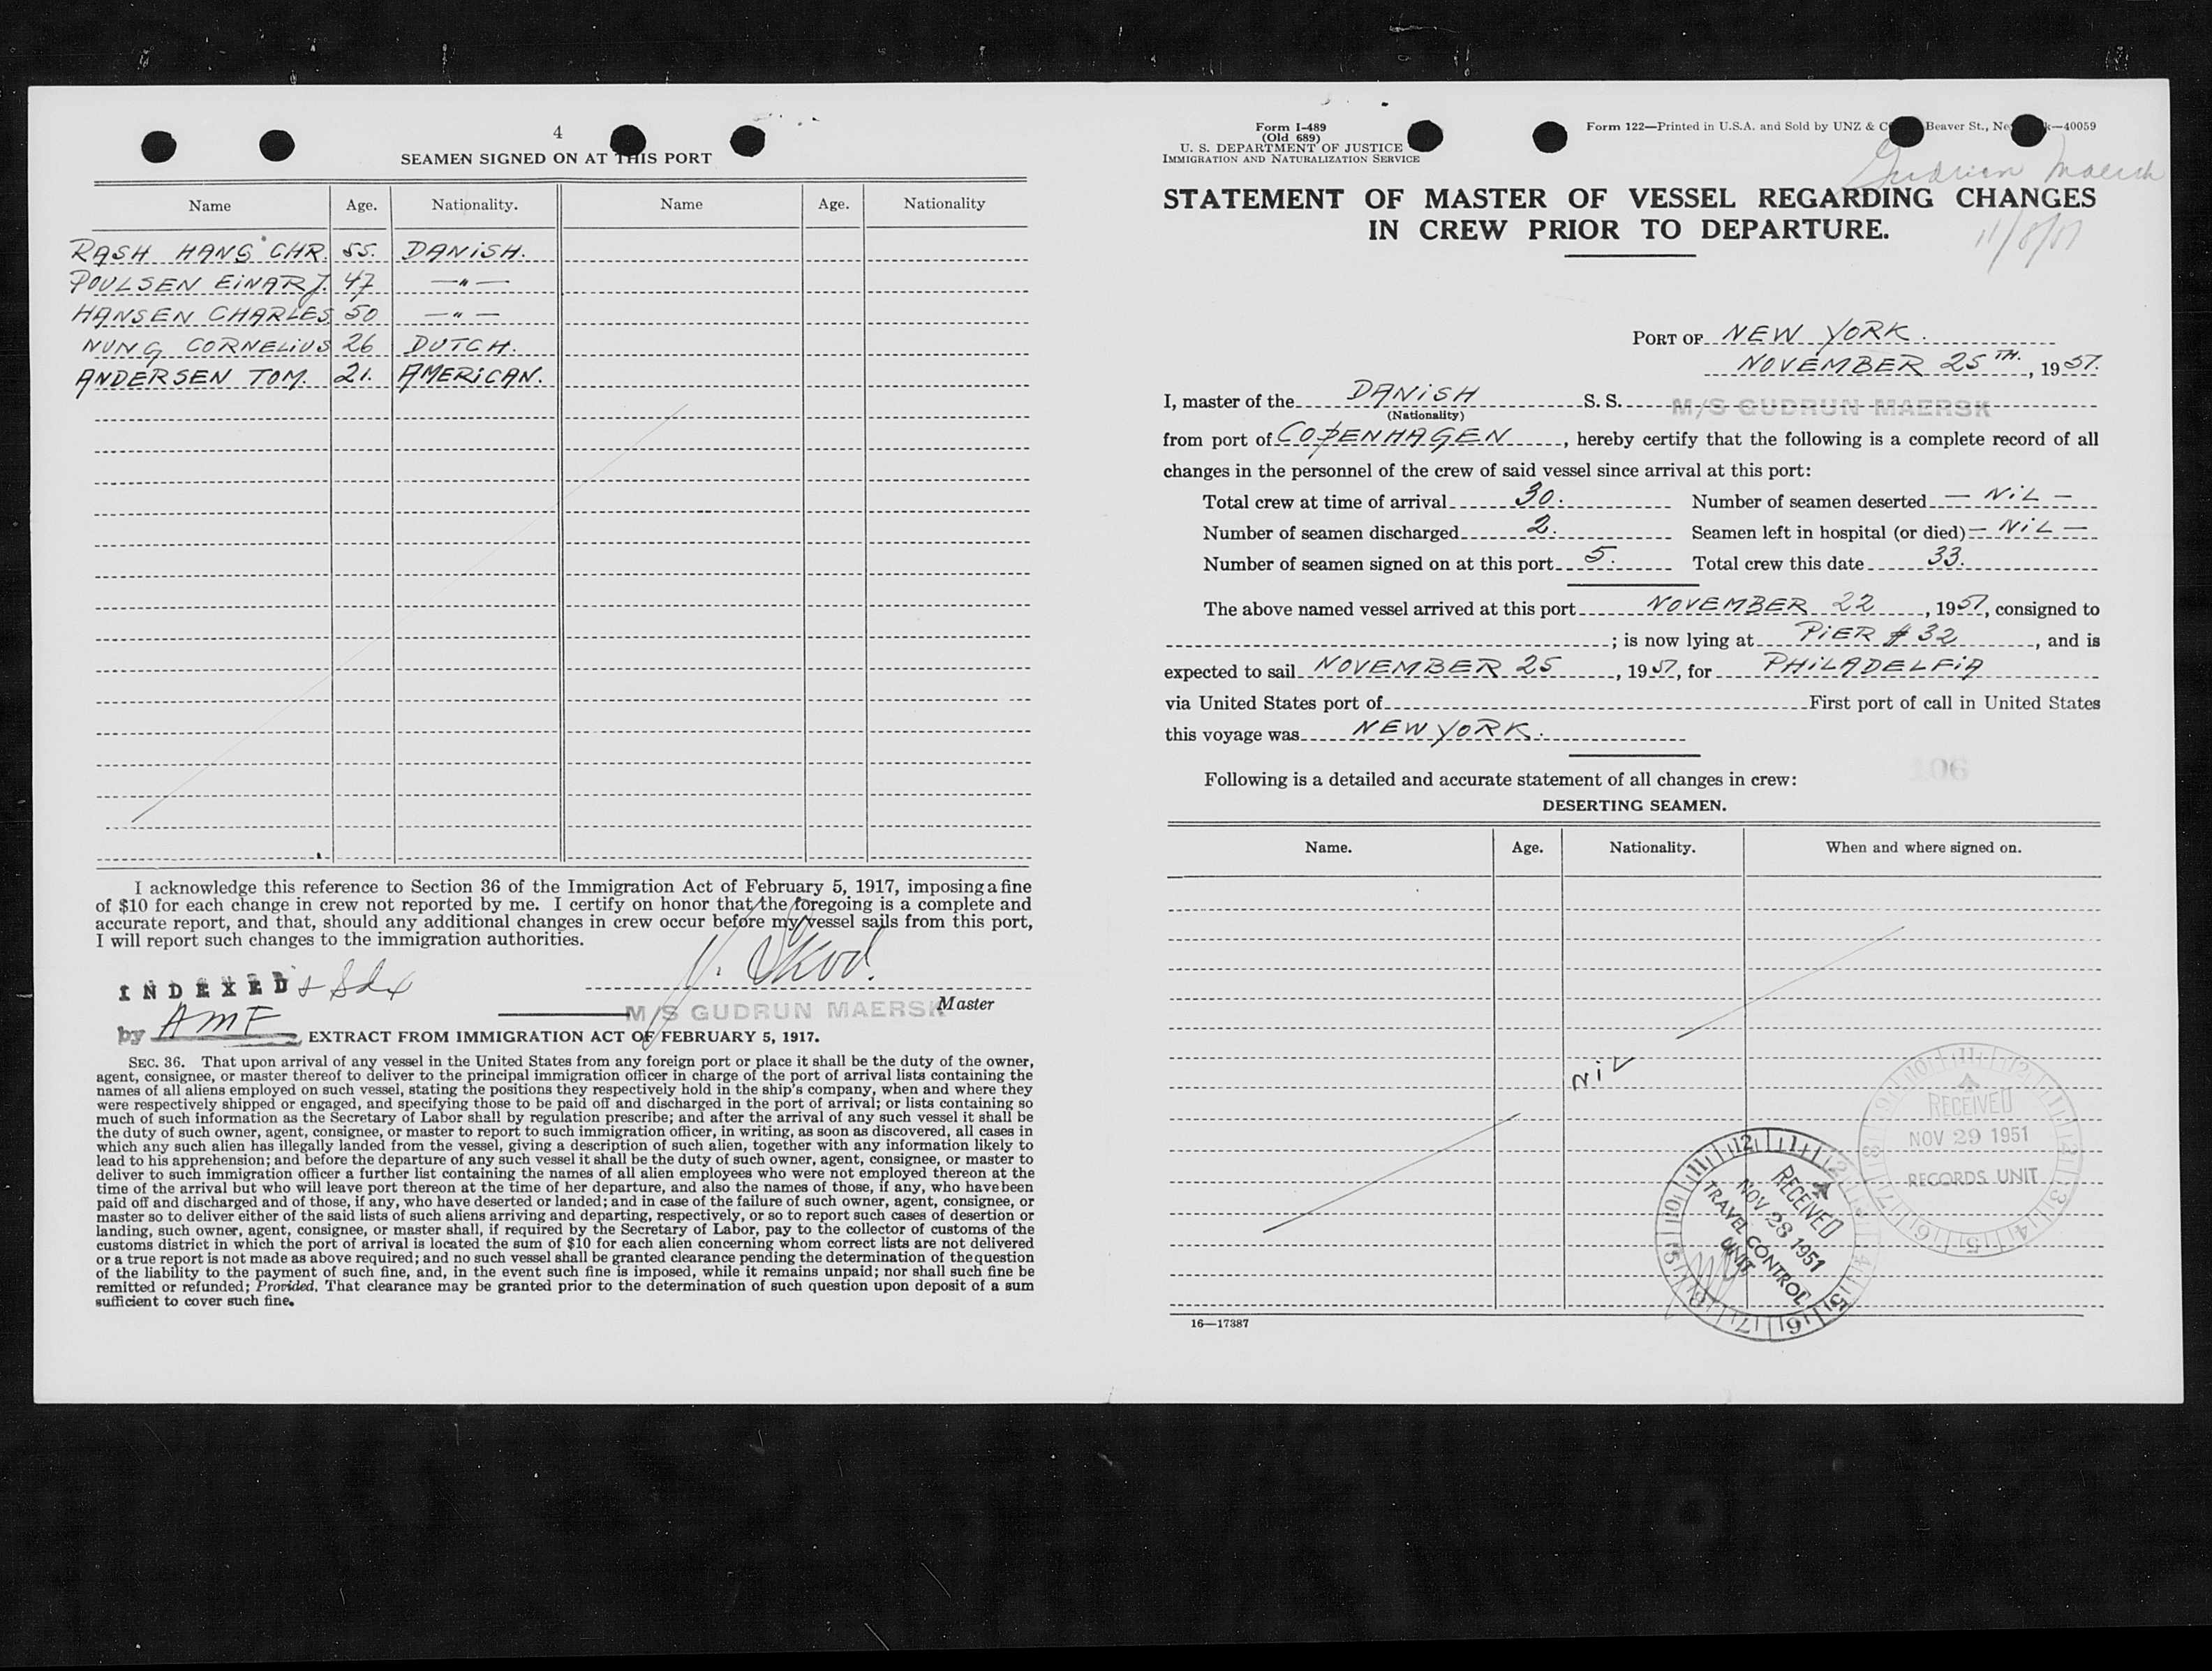 4
SEAMEN SIGNED ON AT THIS PORT
Name Age. Nationality. Name Age. Nationality
RASH HANS CHR. 55. DANISH.
POULSEN EINAR J. 47 —"—
HANSEN CHARLES 50 —"—
NUNG CORNELIUS 26 DUTCH.
ANDERSEN TOM. 21. AMERICAN.
I acknowledge this reference to Section 36 of the Immigration Act of February 5, 1917, imposing a fine
of $10 for each change in crew not reported by me. I certify on honor that the foregoing is a complete and
accurate report, and that, should any additional changes in crew occur before my vessel sails from this port,
I will report such changes to the immigration authorities.
INDEXED
by AMF
M/S GUDRUN MAERSK Master
EXTRACT FROM IMMIGRATION ACT OF FEBRUARY 5, 1917.
SEC. 36. That upon arrival of any vessel in the United States from any foreign port or place it shall be the duty of the owner,
agent, consignee, or master thereof to deliver to the principal immigration officer in charge of the port of arrival lists containing the
names of all aliens employed on such vessel, stating the positions they respectively hold in the ship's company, when and where they
were respectively shipped or engaged, and specifying those to be paid off and discharged in the port of arrival; or lists containing so
much of such information as the Secretary of Labor shall by regulation prescribe; and after the arrival of any such vessel it shall be
the duty of such owner, agent, consignee, or master to report to such immigration officer, in writing, as soon as discovered, all cases in
which any such alien has illegally landed from the vessel, giving a description of such alien, together with any information likely to
lead to his apprehension; and before the departure of any such vessel it shall be the duty of such owner, agent, consignee, or master to
deliver to such immigration officer a further list containing the names of all alien employees who were not employed thereon at the
time of the arrival but who will leave port thereon at the time of her departure, and also the names of those, if any, who have been
paid off and discharged and of those, if any, who have deserted or landed; and in case of the failure of such owner, agent, consignee, or
master so to deliver either of the said lists of such aliens arriving and departing, respectively, or so to report such cases of desertion or
landing, such owner, agent, consignee, or master shall, if required by the Secretary of Labor, pay to the collector of customs of the
customs district in which the port of arrival is located the sum of $10 for each alien concerning whom correct lists are not delivered
or a true report is not made as above required; and no such vessel shall be granted clearance pending the determination of the question
of the liability to the payment of such fine, and, in the event such fine is imposed, while it remains unpaid; nor shall such fine be
remitted or refunded; Provided, That clearance may be granted prior to the determination of such question upon deposit of a sum
sufficient to cover such fine.
Form I-489
(Old 689)
U. S. DEPARTMENT OF JUSTICE
IMMIGRATION AND NATURALIZATION SERVICE
Form 122—Printed in U.S.A. and Sold by UNZ & Beaver St., —40059
Gudrun Maersk
STATEMENT OF MASTER OF VESSEL REGARDING CHANGES
IN CREW PRIOR TO DEPARTURE.
PORT OF NEW YORK.
NOVEMBER 25TH., 1951.
I, master of the DANISH S. S. M/S GUDRUN MAERSK
(Nationality)
from port of COPENHAGEN, hereby certify that the following is a complete record of all
changes in the personnel of the crew of said vessel since arrival at this port:
Total crew at time of arrival 30. Number of seamen deserted — NIL —
Number of seamen discharged 2. Seamen left in hospital (or died) — NIL —
Number of seamen signed on at this port 5. Total crew this date 33.
The above named vessel arrived at this port NOVEMBER 22, 1951, consigned to
; is now lying at PIER # 32, and is
expected to sail NOVEMBER 25, 1951, for PHILADELFIA
via United States port of First port of call in United States
this voyage was NEW YORK.
106
Following is a detailed and accurate statement of all changes in crew:
DESERTING SEAMEN.
Name. Age. Nationality. When and where signed on.
NIL
RECEIVED
NOV 29 1951
RECORDS UNIT
RECEIVED
NOV 28 1951
TRAVEL CONTROL
UNIT
16—17387